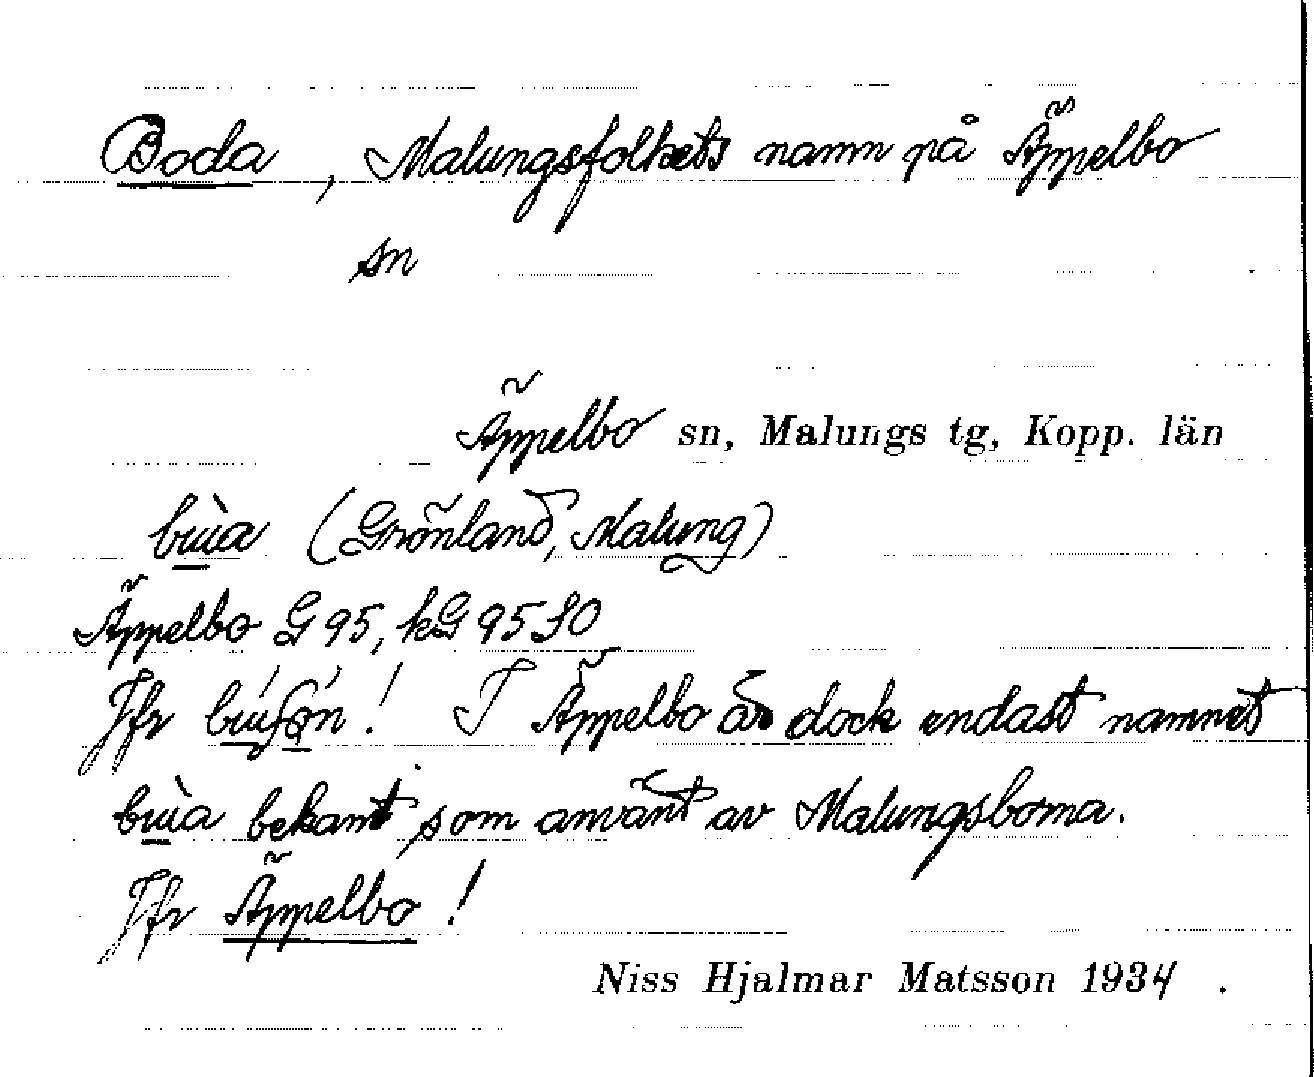 Boda, Malungsfolkets namn på Äppelbo
sn
Äppelbo sn, Malungs tg, Kopp. län
(Grönland, Malung)
Äppelbo G 95, kG 95 SO
Jfr ! I Äppelbo är dock endast namnet
bekant som använt av Malungsborna.
Jfr Äppelbo !
Niss Hjalmar Matsson 1934 .